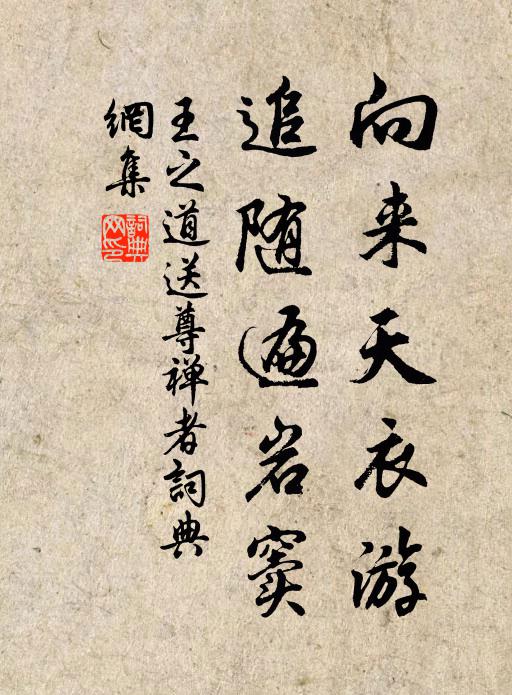 向来天衣游
追随遍岩窦
王之道送尊禅者詞典
網集
詞典網印